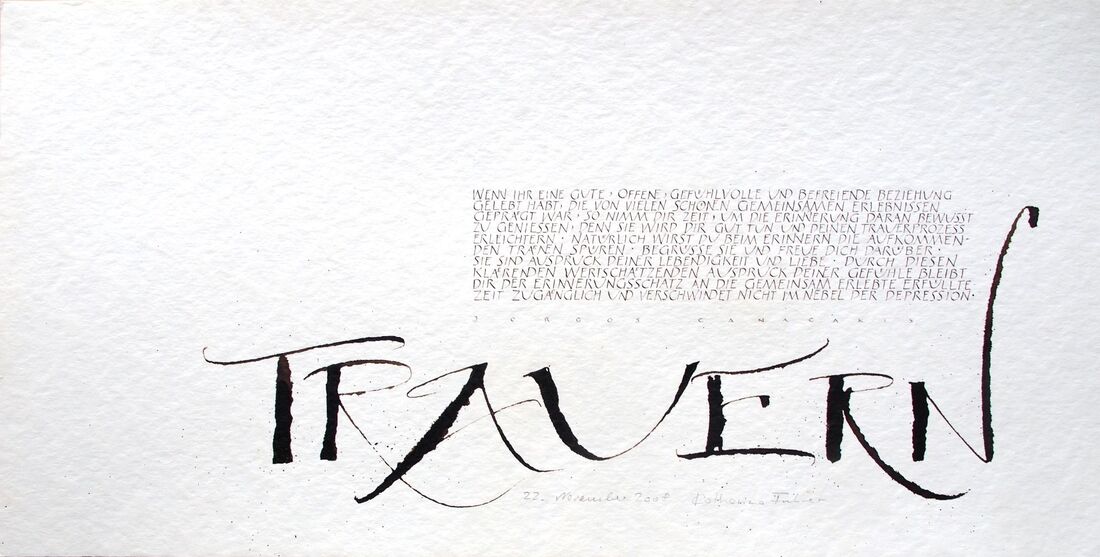 WENN IHR EINE GUTE · OFFENE · GEFÜHLVOLLE UND BEFREIENDE BEZIEHUNG
GELEBT HABT, DIE VON VIELEN SCHÖNEN GEMEINSAMEN ERLEBNISSEN
GEPRÄGT WAR · SO NIMM DIR ZEIT, UM DIE ERINNERUNG DARAN BEWUSST
ZU GENIESSEN, DENN SIE WIRD DIR GUT TUN UND DEINEN TRAUERPROZESS
ERLEICHTERN · NATÜRLICH WIRST DU BEIM ERINNERN DIE AUFKOMMEN-
DEN TRÄNEN SPÜREN · BEGRÜSSE SIE UND FREUE DICH DARÜBER ·
SIE SIND AUSDRUCK DEINER LEBENDIGKEIT UND LIEBE · DURCH DIESEN
KLÄRENDEN WERTSCHÄTZENDEN AUSDRUCK DEINER GEFÜHLE BLEIBT
DIR DER ERINNERUNGSSCHATZ AN DIE GEMEINSAM ERLEBTE ERFÜLLTE
ZEIT ZUGÄNGLICH UND VERSCHWINDET NICHT IM NEBEL DER DEPRESSION ·
JORGOS CANACAKIS
TRAUERN
22. November